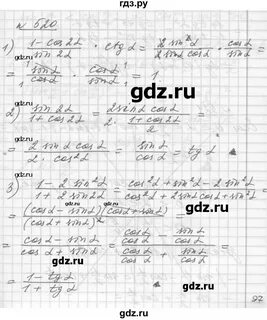 № 520
1) (1 - cos2α)/(sin 2α) · ctg α = (2 sin²α)/(2 sinα cosα) · (cosα)/(sinα) =
= (sinα)/(cosα) · (cosα)/(sinα) = 1
2) (sin2α)/(1 + cos2α) = (2 sinα cosα)/(2 · (1 + cos2α)/2) =
= (2 sinα cosα)/(2 · cos²α) = (sinα)/(cosα) = tg α
3) (1 - 2 sin²α)/(1 + 2 sin²α) = (cos²α + sin²α - 2 sin²α)/(cos²α + 2 sin²α + sin²α) =
= ((cosα - sinα)(cosα + sinα))/((cosα + sinα)²) =
= (cosα - sinα)/(cosα + sinα) = (cosα/cosα - sinα/cosα)/(cosα/cosα + sinα/cosα) =
= (1 - tg α)/(1 + tg α)
gdz.ru
gdz.ru
gdz.ru
gdz.ru
gdz.ru
gdz.ru
gdz.ru
gdz.ru
gdz.ru